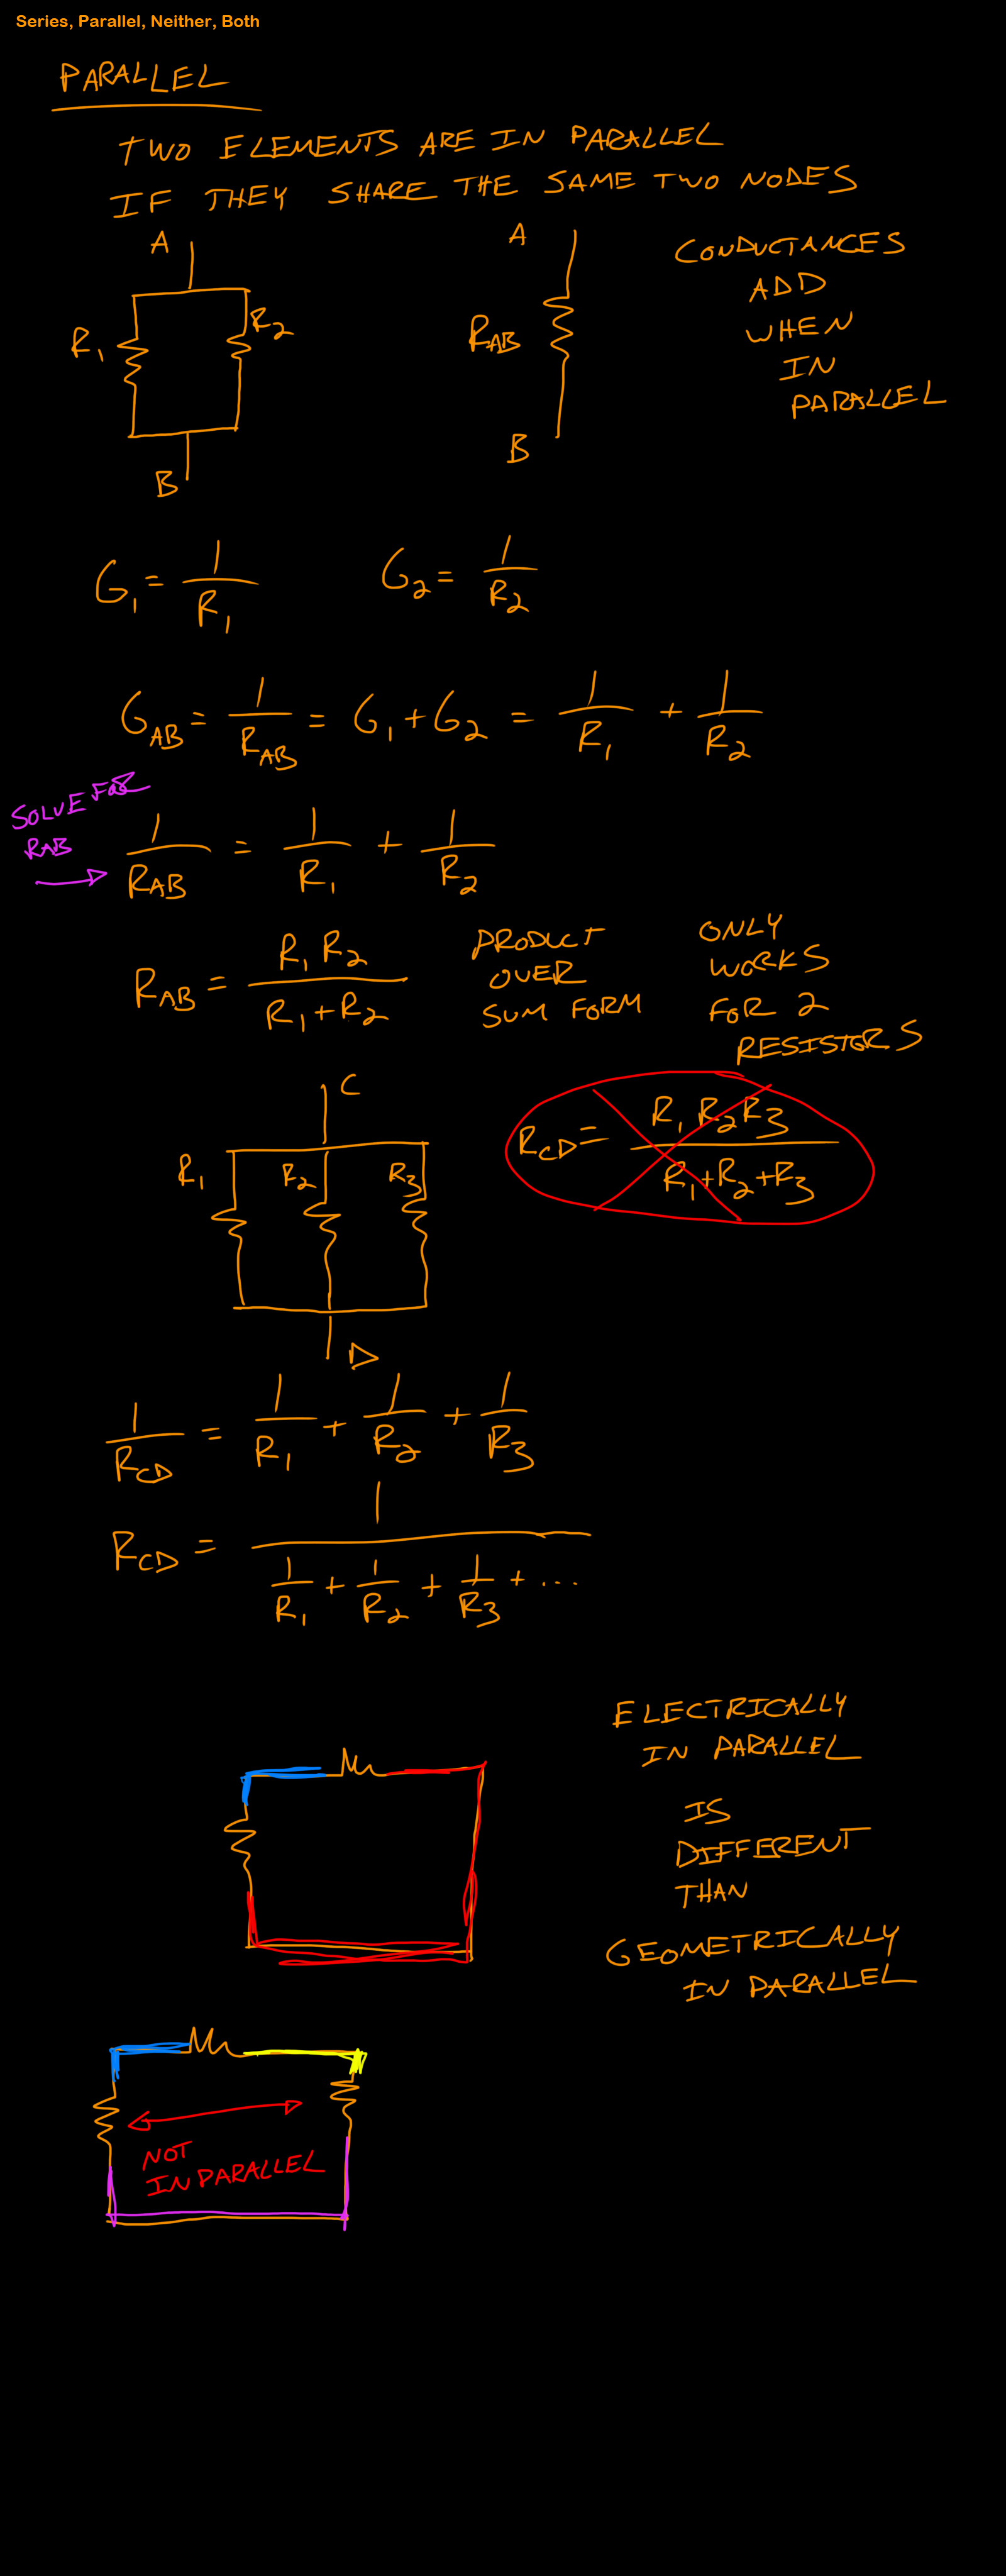 Series, Parallel, Neither, Both
PARALLEL
TWO ELEMENTS ARE IN PARALLEL
IF THEY SHARE THE SAME TWO NODES
A
R₁
R₂
B
A
R_AB
B
CONDUCTANCES
ADD
WHEN
IN
PARALLEL
G₁ = 1/R₁
G₂ = 1/R₂
G_AB = 1/R_AB = G₁ + G₂ = 1/R₁ + 1/R₂
SOLVE FOR
RAB
1/R_AB = 1/R₁ + 1/R₂
R_AB = R₁ R₂ / (R₁ + R₂)
PRODUCT
OVER
SUM FORM
ONLY
WORKS
FOR 2
RESISTORS
C
R₁
R₂
R₃
D
R_CD = R₁ R₂ R₃ / (R₁ + R₂ + R₃)
1/R_CD = 1/R₁ + 1/R₂ + 1/R₃
R_CD = 1 / (1/R₁ + 1/R₂ + 1/R₃ + ...)
ELECTRICALLY
IN PARALLEL
IS
DIFFERENT
THAN
GEOMETRICALLY
IN PARALLEL
NOT
IN PARALLEL